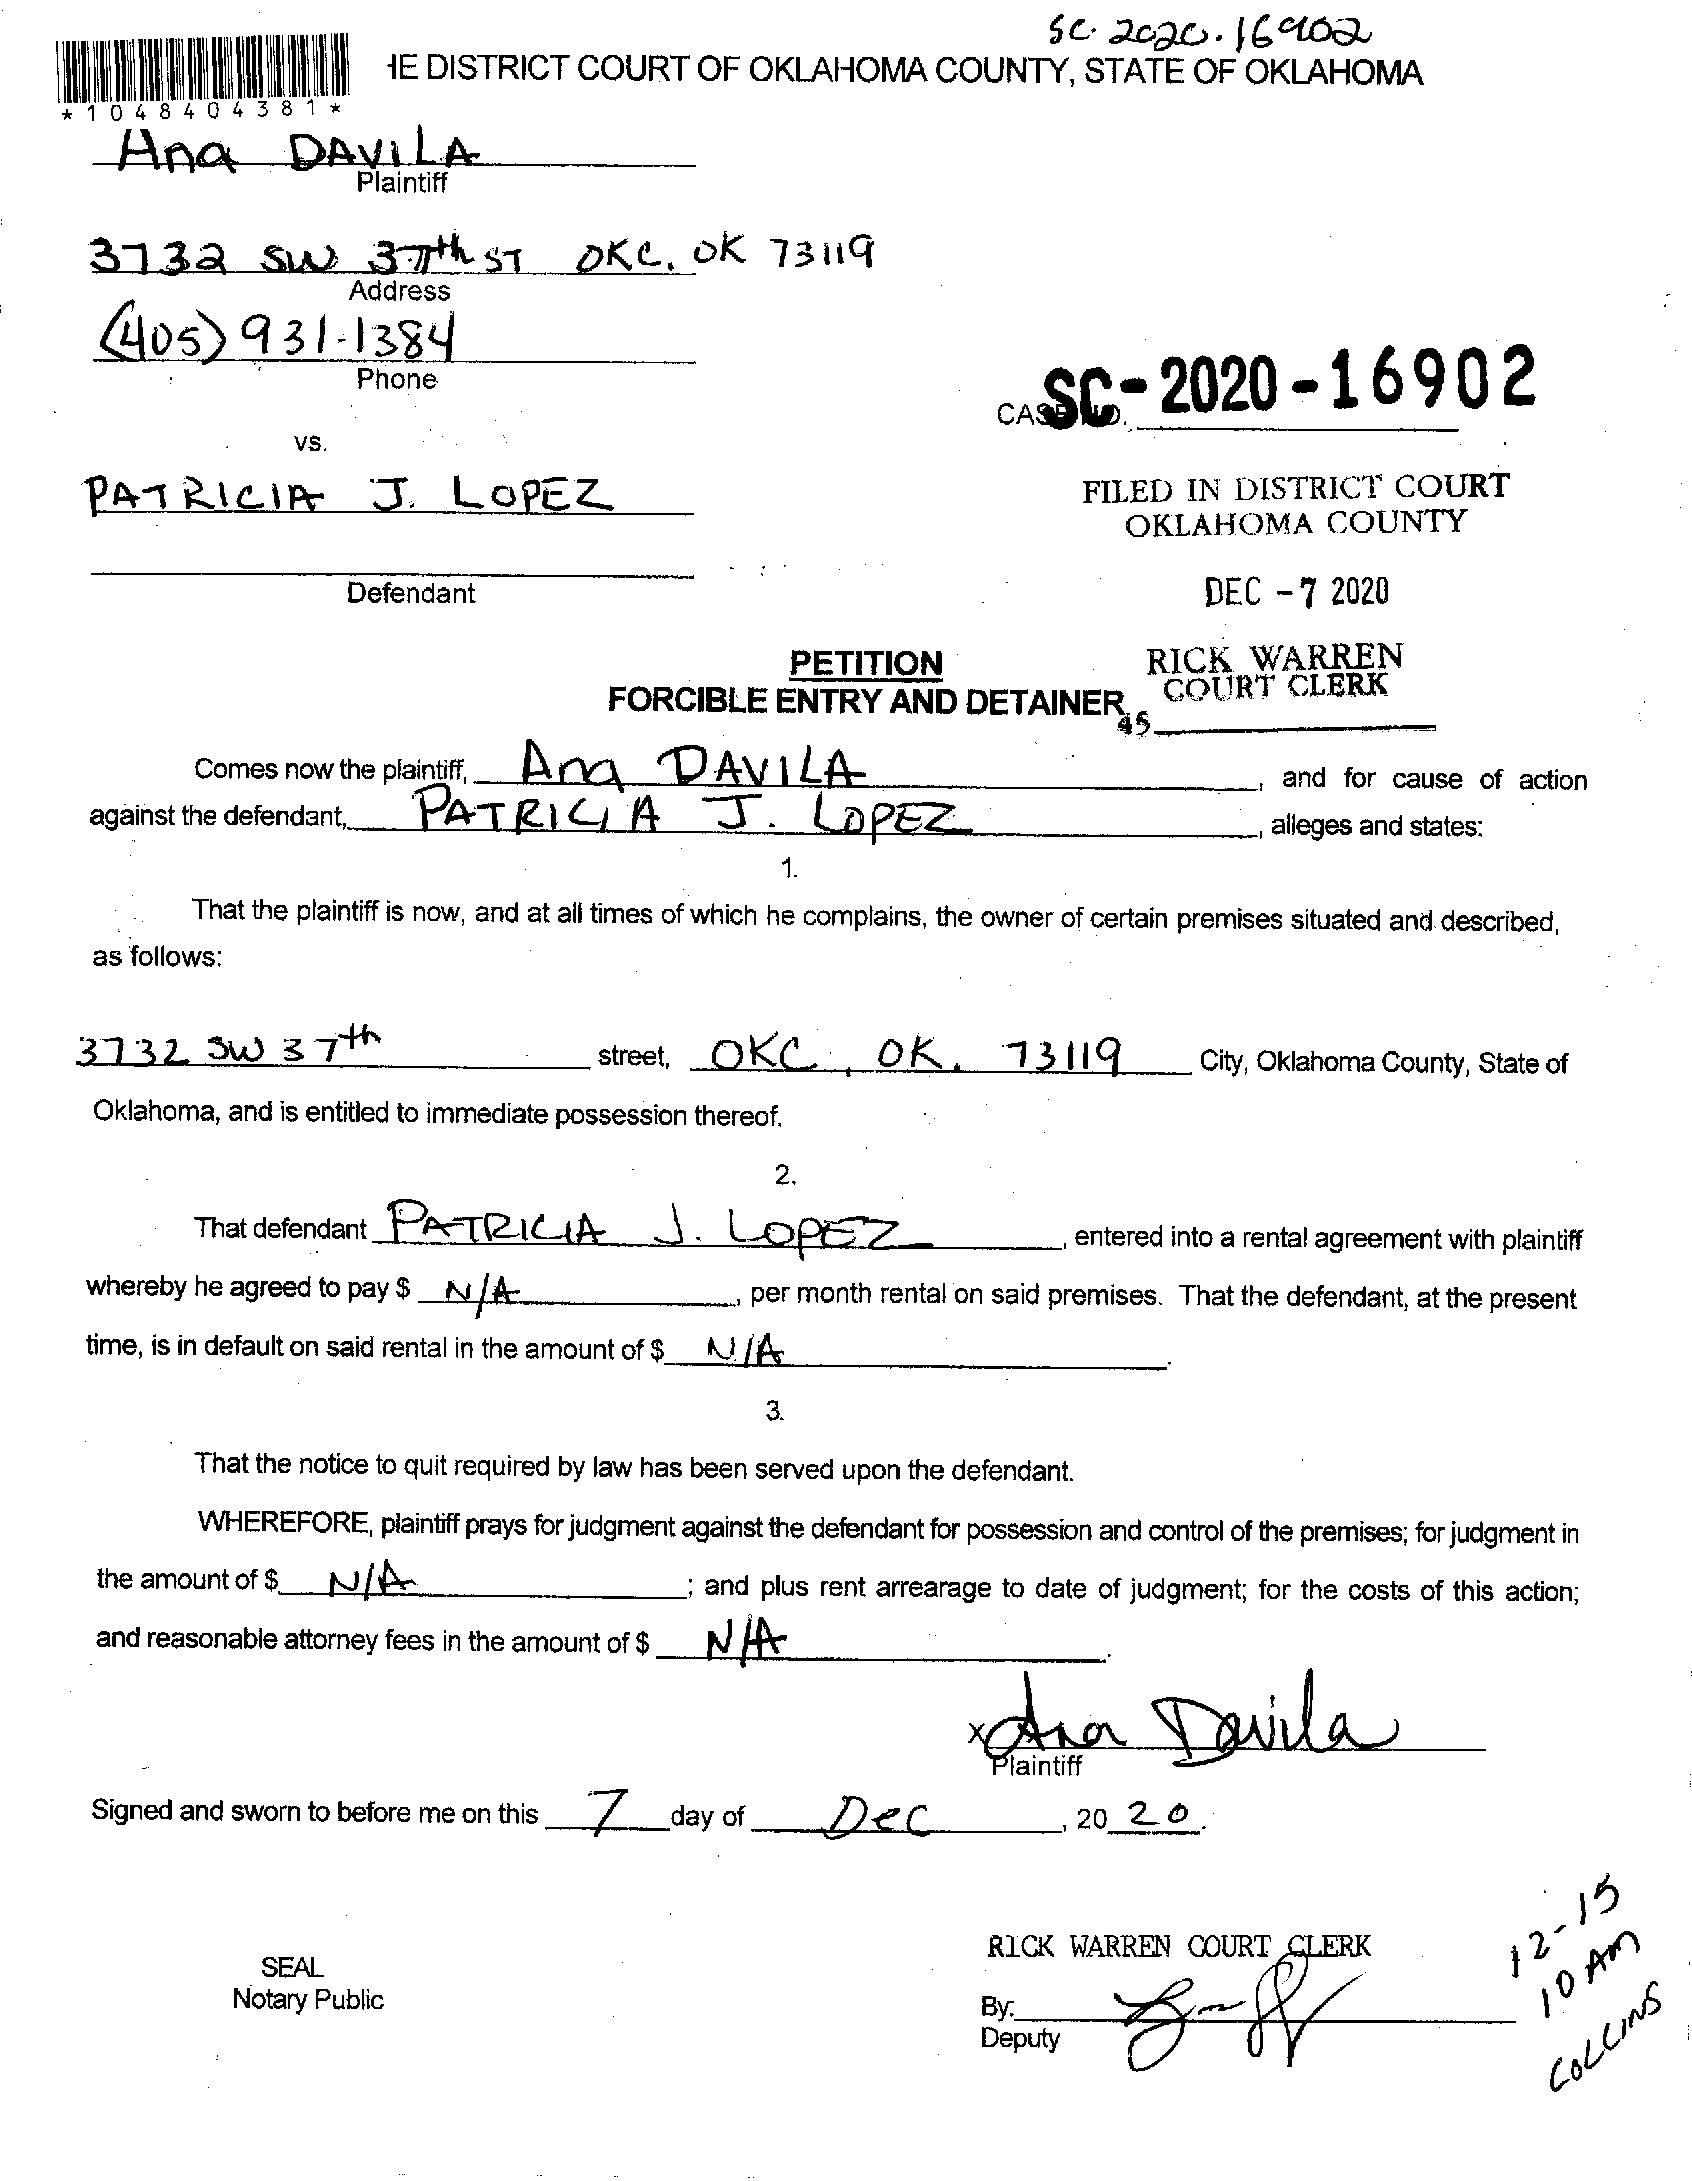 SC. 2020. 16902
HE DISTRICT COURT OF OKLAHOMA COUNTY, STATE OF OKLAHOMA
*1048404381*
Ana DAVILA
Plaintiff
3732 SW 37th ST OKC, OK 73119
Address
(405) 931-1384
Phone
SC-2020-16902
CASE NO.
vs.
PATRICIA J. LOPEZ
FILED IN DISTRICT COURT
OKLAHOMA COUNTY
Defendant
DEC - 7 2020
PETITION
RICK WARREN
FORCIBLE ENTRY AND DETAINER
COURT CLERK
45
Comes now the plaintiff, Ana DAVILA, and for cause of action
against the defendant, PATRICIA J. LOPEZ, alleges and states:
1.
That the plaintiff is now, and at all times of which he complains, the owner of certain premises situated and described,
as follows:
3732 SW 37th street, OKC, OK. 73119 City, Oklahoma County, State of
Oklahoma, and is entitled to immediate possession thereof.
2.
That defendant PATRICIA J. LOPEZ, entered into a rental agreement with plaintiff
whereby he agreed to pay $ N/A, per month rental on said premises. That the defendant, at the present
time, is in default on said rental in the amount of $ N/A.
3.
That the notice to quit required by law has been served upon the defendant.
WHEREFORE, plaintiff prays for judgment against the defendant for possession and control of the premises; for judgment in
the amount of $ N/A; and plus rent arrearage to date of judgment; for the costs of this action;
and reasonable attorney fees in the amount of $ N/A.
x Ana Davila
Plaintiff
Signed and sworn to before me on this 7 day of Dec, 20 20.
12-15
10 AM
COLLINS
RICK WARREN COURT CLERK
SEAL
Notary Public
By:
Deputy